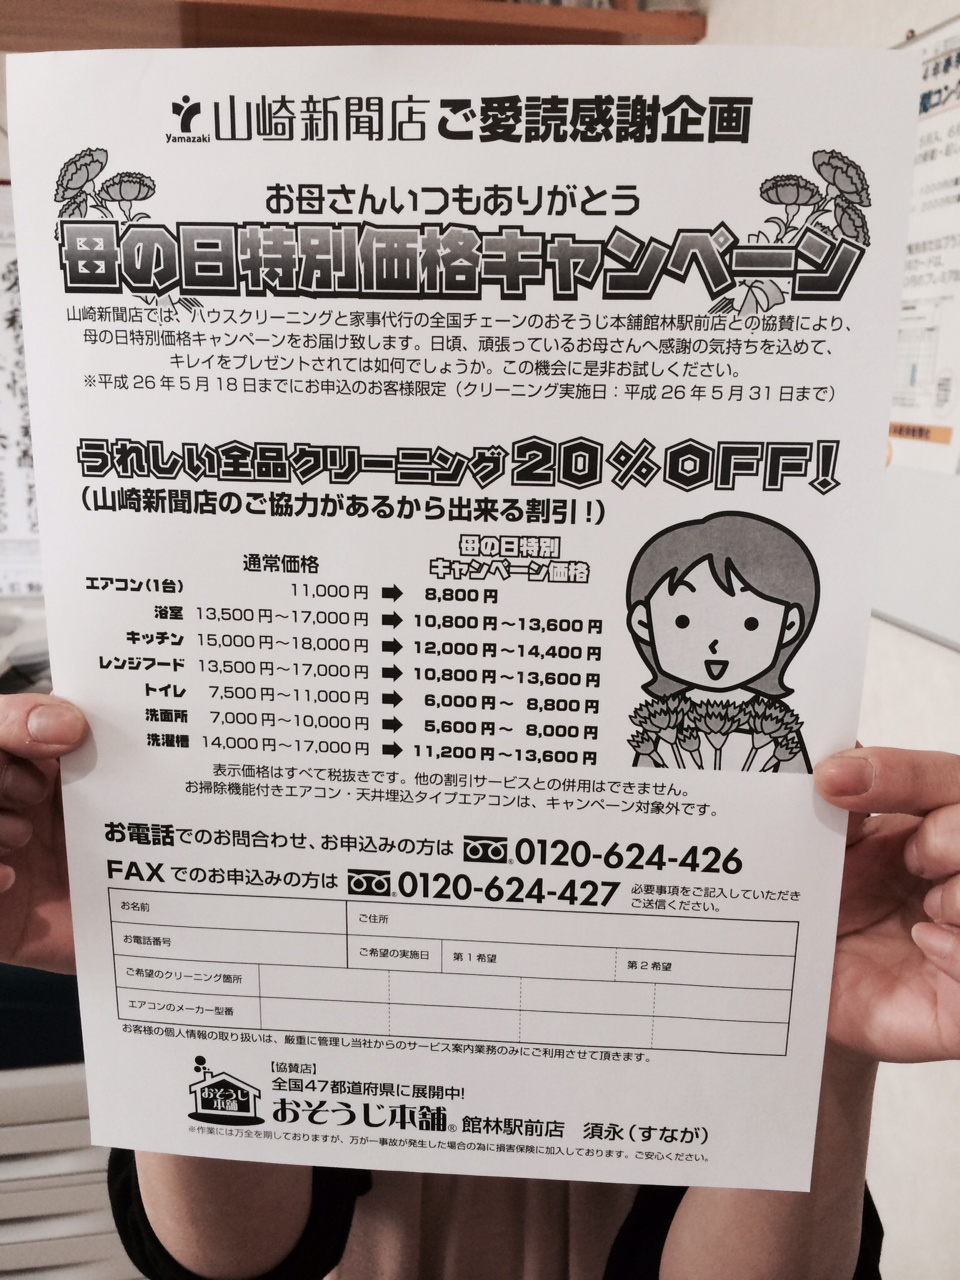 yamazaki 山崎新聞店 ご愛読感謝企画
お母さんいつもありがとう
母の日特別価格キャンペーン
山崎新聞店では、ハウスクリーニングと家事代行の全国チェーンのおそうじ本舗館林駅前店との協賛により、
母の日特別価格キャンペーンをお届け致します。日頃、頑張っているお母さんへ感謝の気持ちを込めて、
キレイをプレゼントされては如何でしょうか。この機会に是非お試しください。
※平成26年5月18日までにお申込のお客様限定（クリーニング実施日：平成26年5月31日まで）
うれしい全品クリーニング20%OFF!
（山崎新聞店のご協力があるから出来る割引!）
通常価格 母の日特別
キャンペーン価格
エアコン（1台） 11,000円 ➡ 8,800円
浴室 13,500円〜17,000円 ➡ 10,800円〜13,600円
キッチン 15,000円〜18,000円 ➡ 12,000円〜14,400円
レンジフード 13,500円〜17,000円 ➡ 10,800円〜13,600円
トイレ 7,500円〜11,000円 ➡ 6,000円〜 8,800円
洗面所 7,000円〜10,000円 ➡ 5,600円〜 8,000円
洗濯槽 14,000円〜17,000円 ➡ 11,200円〜13,600円
表示価格はすべて税抜きです。他の割引サービスとの併用はできません。
お掃除機能付きエアコン・天井埋込タイプエアコンは、キャンペーン対象外です。
お電話でのお問合わせ、お申込みの方は 0120-624-426
FAXでのお申込みの方は 0120-624-427 必要事項をご記入していただき
ご送信ください。
お名前 ご住所
お電話番号 ご希望の実施日 第1希望 第2希望
ご希望のクリーニング箇所
エアコンのメーカー型番
お客様の個人情報の取り扱いは、厳重に管理し当社からのサービス案内業務のみにご利用させて頂きます。
【協賛店】
全国47都道府県に展開中!
おそうじ本舗 おそうじ本舗® 館林駅前店 須永（すなが）
※作業には万全を期しておりますが、万が一事故が発生した場合の為に損害保険に加入しております。ご安心ください。